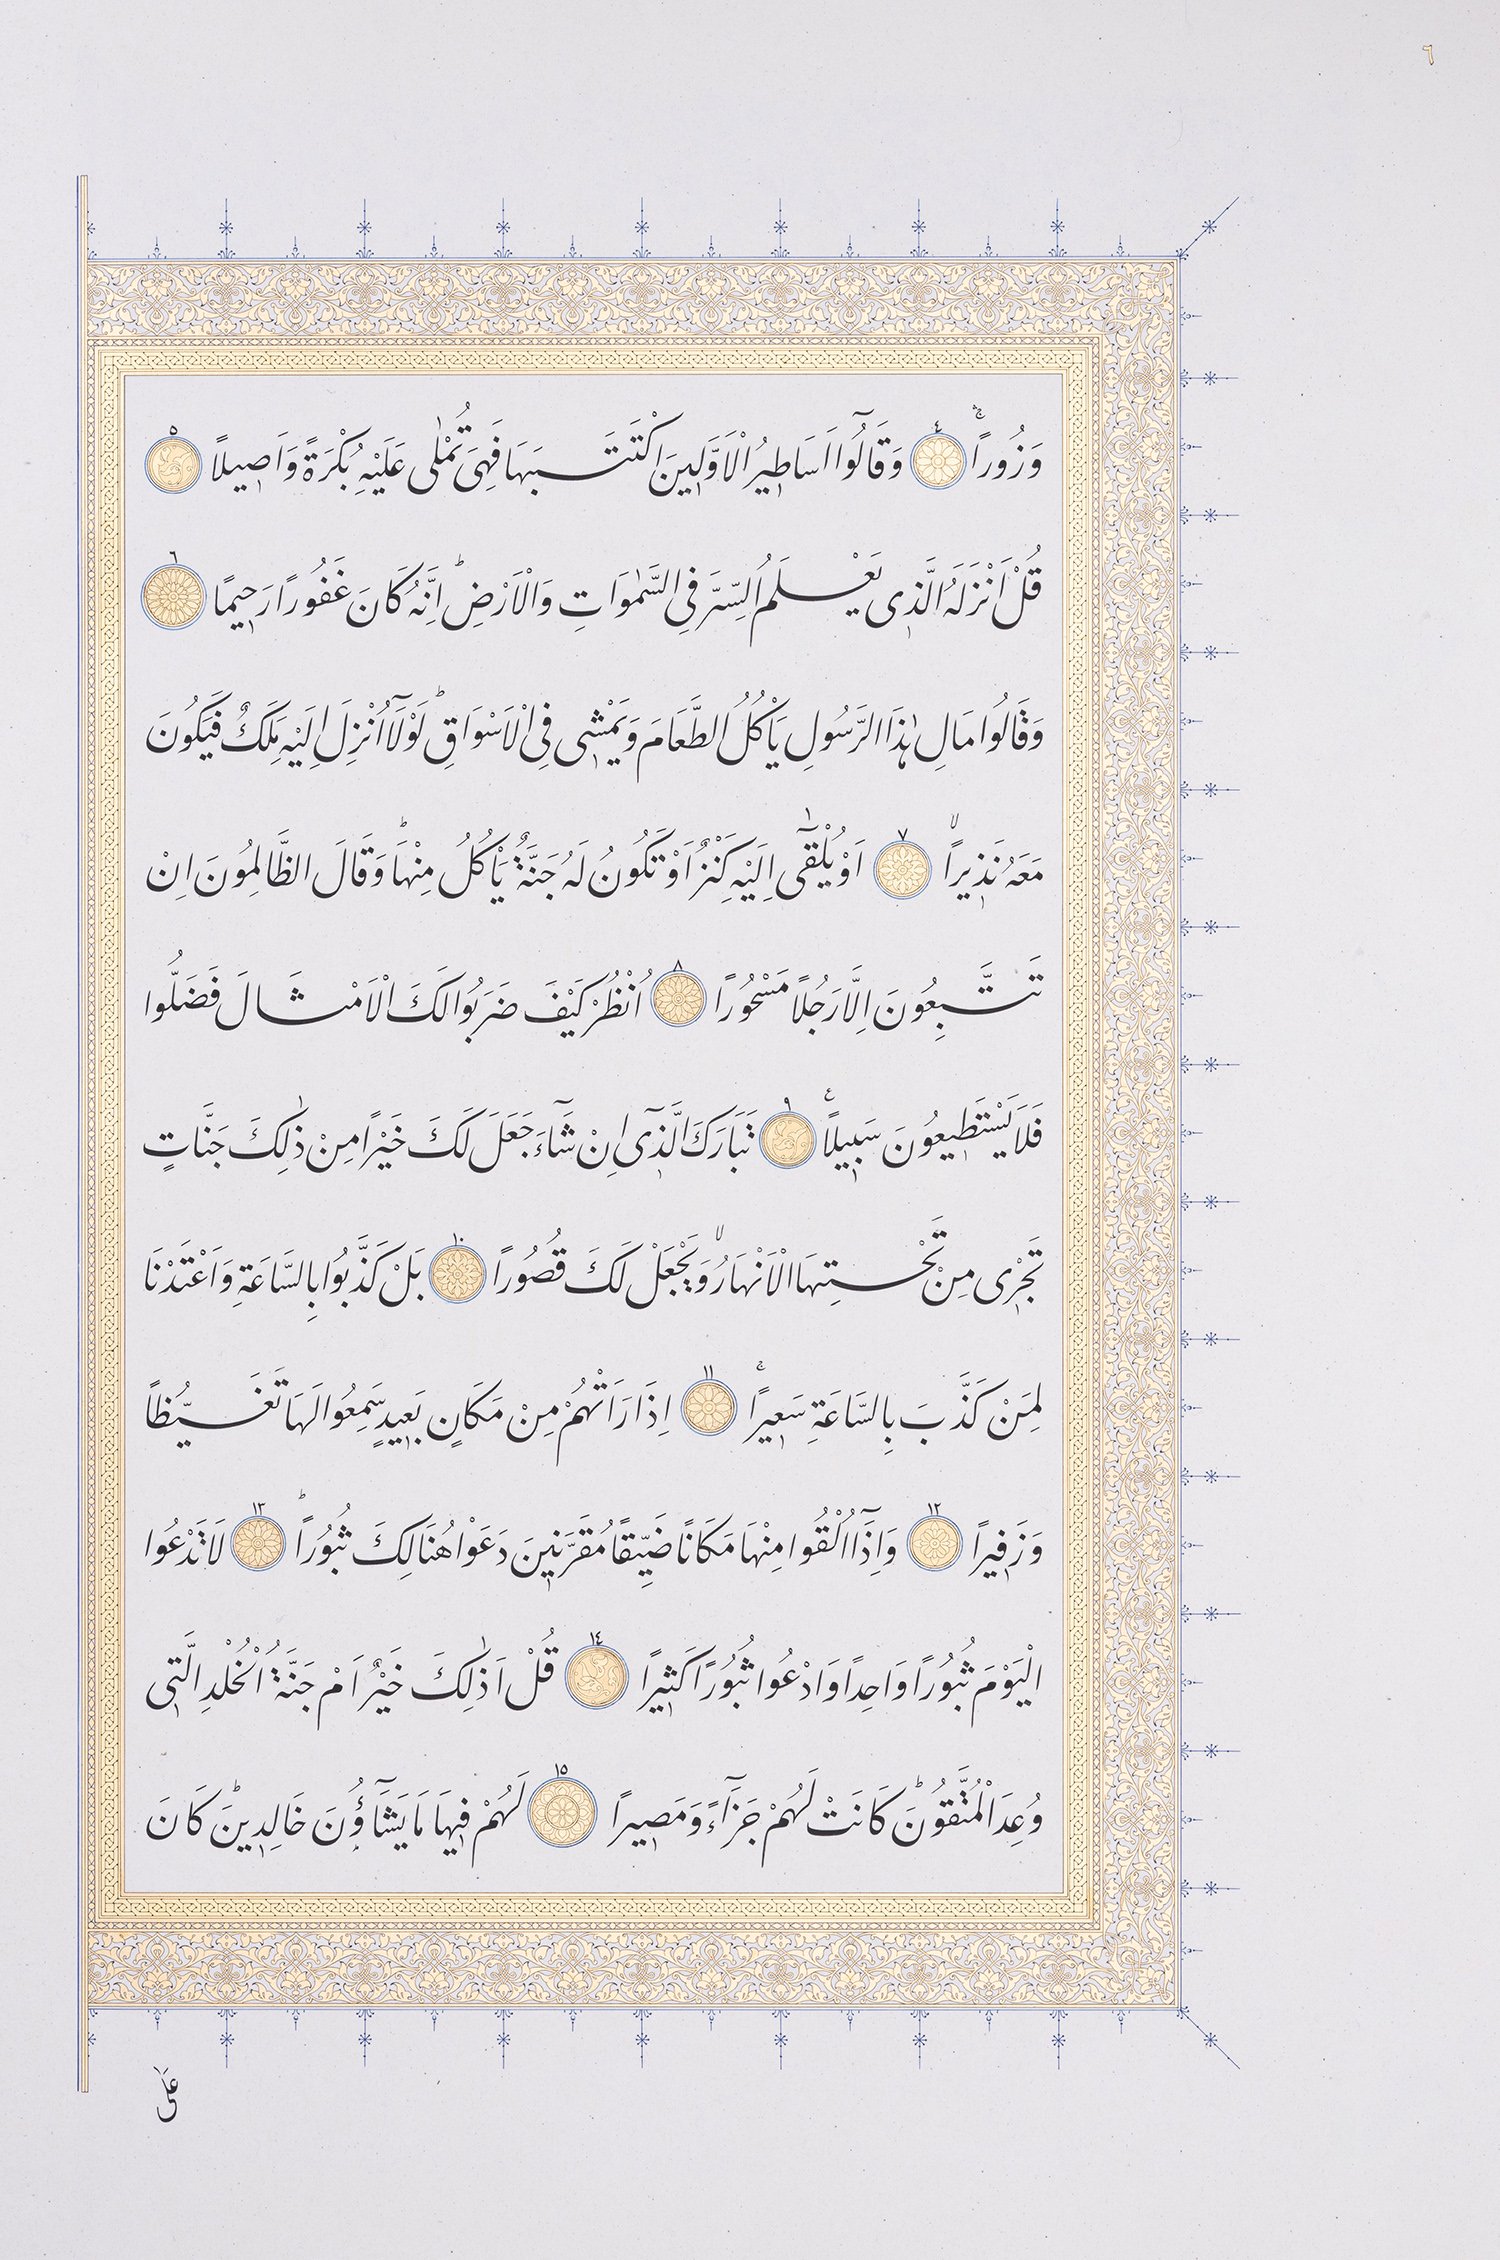 ٦
وَزُورًا ۚ ٤ وَقَالُٓوا اَسَاطِيرُ الْاَوَّلِينَ اكْتَتَبَهَا فَهِىَ تُمْلٰى عَلَيْهِ بُكْرَةً وَاَصِيلًا ٥
قُلْ اَنْزَلَهُ الَّذِى يَعْلَمُ السِّرَّ فِى السَّمٰوَاتِ وَالْاَرْضِۜ اِنَّهُ كَانَ غَفُورًا رَحِيمًا ٦
وَقَالُوا مَالِ هٰذَا الرَّسُولِ يَاْكُلُ الطَّعَامَ وَيَمْشِى فِى الْاَسْوَاقِۜ لَوْلَٓا اُنْزِلَ اِلَيْهِ مَلَكٌ فَيَكُونَ
مَعَهُ نَذِيرًاۙ ٧ اَوْ يُلْقٰٓى اِلَيْهِ كَنْزٌ اَوْ تَكُونُ لَهُ جَنَّةٌ يَاْكُلُ مِنْهَاۜ وَقَالَ الظَّالِمُونَ اِنْ
تَتَّبِعُونَ اِلَّا رَجُلًا مَسْحُورًا ٨ اُنْظُرْ كَيْفَ ضَرَبُوا لَكَ الْاَمْثَالَ فَضَلُّوا
فَلَا يَسْتَطِيعُونَ سَبِيلًا ع ٩ تَبَارَكَ الَّذِٓى اِنْ شَٓاءَ جَعَلَ لَكَ خَيْرًا مِنْ ذٰلِكَ جَنَّاتٍ
تَجْرِى مِنْ تَحْتِهَا الْاَنْهَارُۙ وَيَجْعَلْ لَكَ قُصُورًا ١٠ بَلْ كَذَّبُوا بِالسَّاعَةِ وَاَعْتَدْنَا
لِمَنْ كَذَّبَ بِالسَّاعَةِ سَعِيرًاۚ ١١ اِذَا رَاَتْهُمْ مِنْ مَكَانٍ بَعِيدٍ سَمِعُوا لَهَا تَغَيُّظًا
وَزَفِيرًا ١٢ وَاِذَٓا اُلْقُوا مِنْهَا مَكَانًا ضَيِّقًا مُقَرَّنِينَ دَعَوْا هُنَالِكَ ثُبُورًاۜ ١٣ لَا تَدْعُوا
الْيَوْمَ ثُبُورًا وَاحِدًا وَادْعُوا ثُبُورًا كَثِيرًا ١٤ قُلْ اَذٰلِكَ خَيْرٌ اَمْ جَنَّةُ الْخُلْدِ الَّتِى
وُعِدَ الْمُتَّقُونَۜ كَانَتْ لَهُمْ جَزَٓاءً وَمَصِيرًا ١٥ لَهُمْ فِيهَا مَا يَشَٓاؤُ۫نَ خَالِدِينَۜ كَانَ
عَلٰى